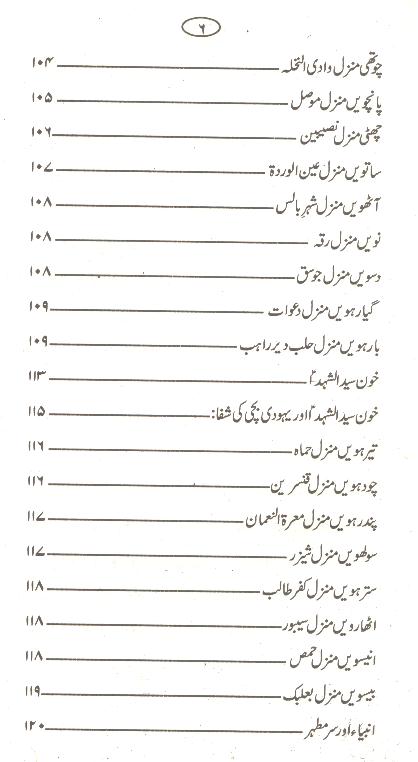 ۶
چوتھی منزل وادی النخلہ ۱۰۴
پانچویں منزل موصل ۱۰۵
چھٹی منزل نصیبین ۱۰۶
ساتویں منزل عین الوردۃ ۱۰۷
آٹھویں منزل شہر بالس ۱۰۸
نویں منزل رقہ ۱۰۸
دسویں منزل جوسق ۱۰۸
گیارہویں منزل دعوات ۱۰۹
بارہویں منزل حلب دیر راہب ۱۰۹
خون سید الشہداؑ ۱۱۳
خون سید الشہداؑ اور یہودی بچی کی شفا: ۱۱۵
تیرہویں منزل حماہ ۱۱۶
چودہویں منزل قنسرین ۱۱۶
پندرہویں منزل معرۃ النعمان ۱۱۷
سولھویں منزل شیزر ۱۱۷
سترہویں منزل کفر طالب ۱۱۸
اٹھارویں منزل سیبور ۱۱۸
انیسویں منزل حمص ۱۱۸
بیسویں منزل بعلبک ۱۱۹
انبیاء اور سر مطہر ۱۲۰